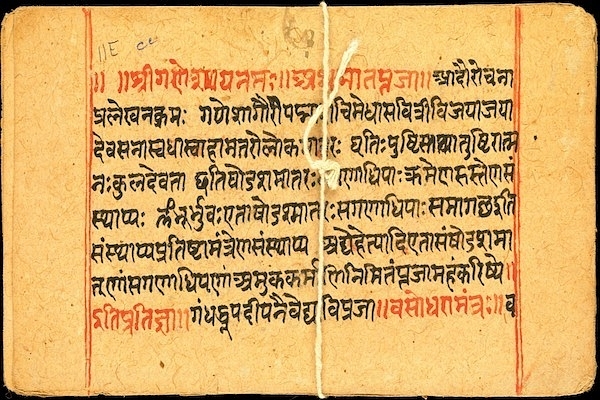 ॥E cc
॥ ॥श्रीगणेशायनमः॥अथ मातृपूजा॥ आदौरोचना
प्रलेखनक्रमः गणेशगौरीपद्माशचिमेधासवित्रीविजयाजया
देवसेनास्वधास्वाहामातरोलोकमातरः धृतिःपुष्टिस्तथातुष्टिरात्म
नःकुलदेवता धृतिषोडशमातरःसगणाधिपाःक्रमेणहस्तेणसं
स्थाप्यः ॐभूर्भुवःएताषोडशमातरःसगणाधिपाः
संस्थाप्यप्रतिष्ठामंत्रेणसंस्थाप्य अद्येहेत्यादिएतासंषोडशमा
तृणांसगणाधिपाणां अमुककर्माणिनिमितंपूजामहंकरिष्ये॥
इतिप्रतिज्ञा॥ गंधधूपदीपनैवेद्य विपूजा॥वसोधारामंत्रः॥व